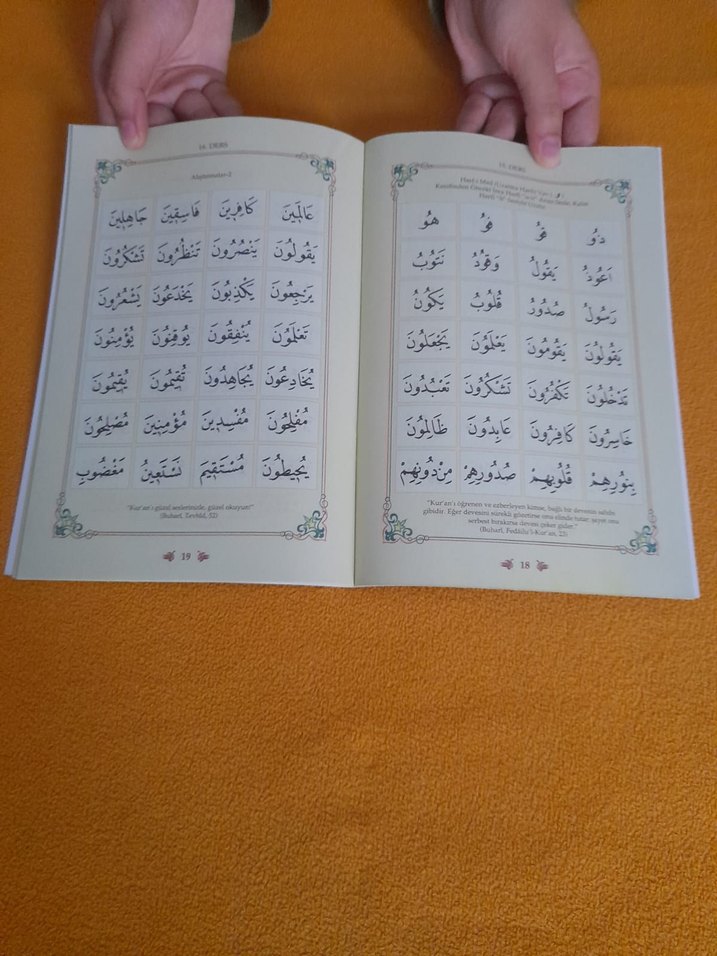 15. DERS
Harf-i Med (Uzatma Harfi)
ذُو فُو قُو هُو
اَعُوذُ يَقُولُ وَقُودُ نَتُوبُ
رَسُولُ صُدُورُ قُلُوبُ يَكُونُ
يَقُولُونَ يَقُومُونَ يَعْلَمُونَ يَجْعَلُونَ
تَدْخُلُونَ تَكْفُرُونَ تَشْكُرُونَ تَعْبُدُونَ
خَاسِرُونَ كَافِرُونَ عَابِدُونَ ظَالِمُونَ
بِنُورِهِمْ قُلُوبِهِمْ صُدُورِهِمْ مِنْ دُونِهِمْ
"Kur'an'ı öğrenen ve ezberleyen kimse, bağlı bir devenin sahibi
gibidir. Eğer devesini sürekli gözetirse onu elinde tutar, şayet onu
serbest bırakırsa devesi çeker gider."
(Buharî, Fedâilu'l-Kur'an, 23)
18
16. DERS
Alıştırmalar-2
عَالَمِينَ كَافِرِينَ فَاسِقِينَ جَاهِلِينَ
يَقُولُونَ يَنْصُرُونَ تَنْظُرُونَ تَشْكُرُونَ
يَرْجِعُونَ يَكْذِبُونَ يَخْدَعُونَ يَشْعُرُونَ
تَعْلَمُونَ يُنْفِقُونَ يُوقِنُونَ يُؤْمِنُونَ
يُخَادِعُونَ يُجَاهِدُونَ تُقِيمُونَ يُقِيمُونَ
مُفْلِحُونَ مُفْسِدِينَ مُؤْمِنِينَ مُصْلِحُونَ
يُحِيطُونَ مُسْتَقِيمَ نَسْتَعِينُ مَغْضُوبِ
"Kur'an'ı güzel seslerinizle, güzel okuyun!"
(Buharî, Tevhîd, 52)
19